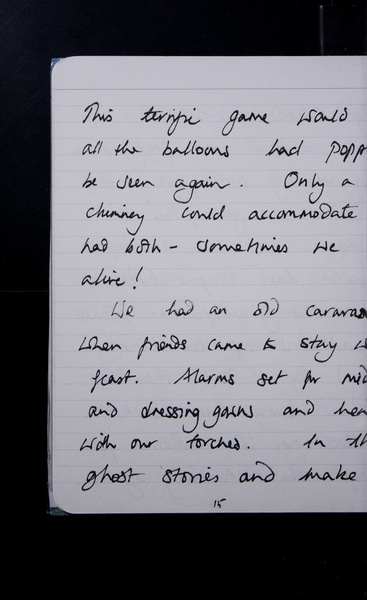 This terrific game would
all the balloons had popp
be seen again. Only a
chimney could accommodate
had both - sometimes we
alive!
We had an old caravan
when friends came to stay w
feast. Alarms set for mid
and dressing gowns and hea
with our torches. In th
ghost stories and make
15